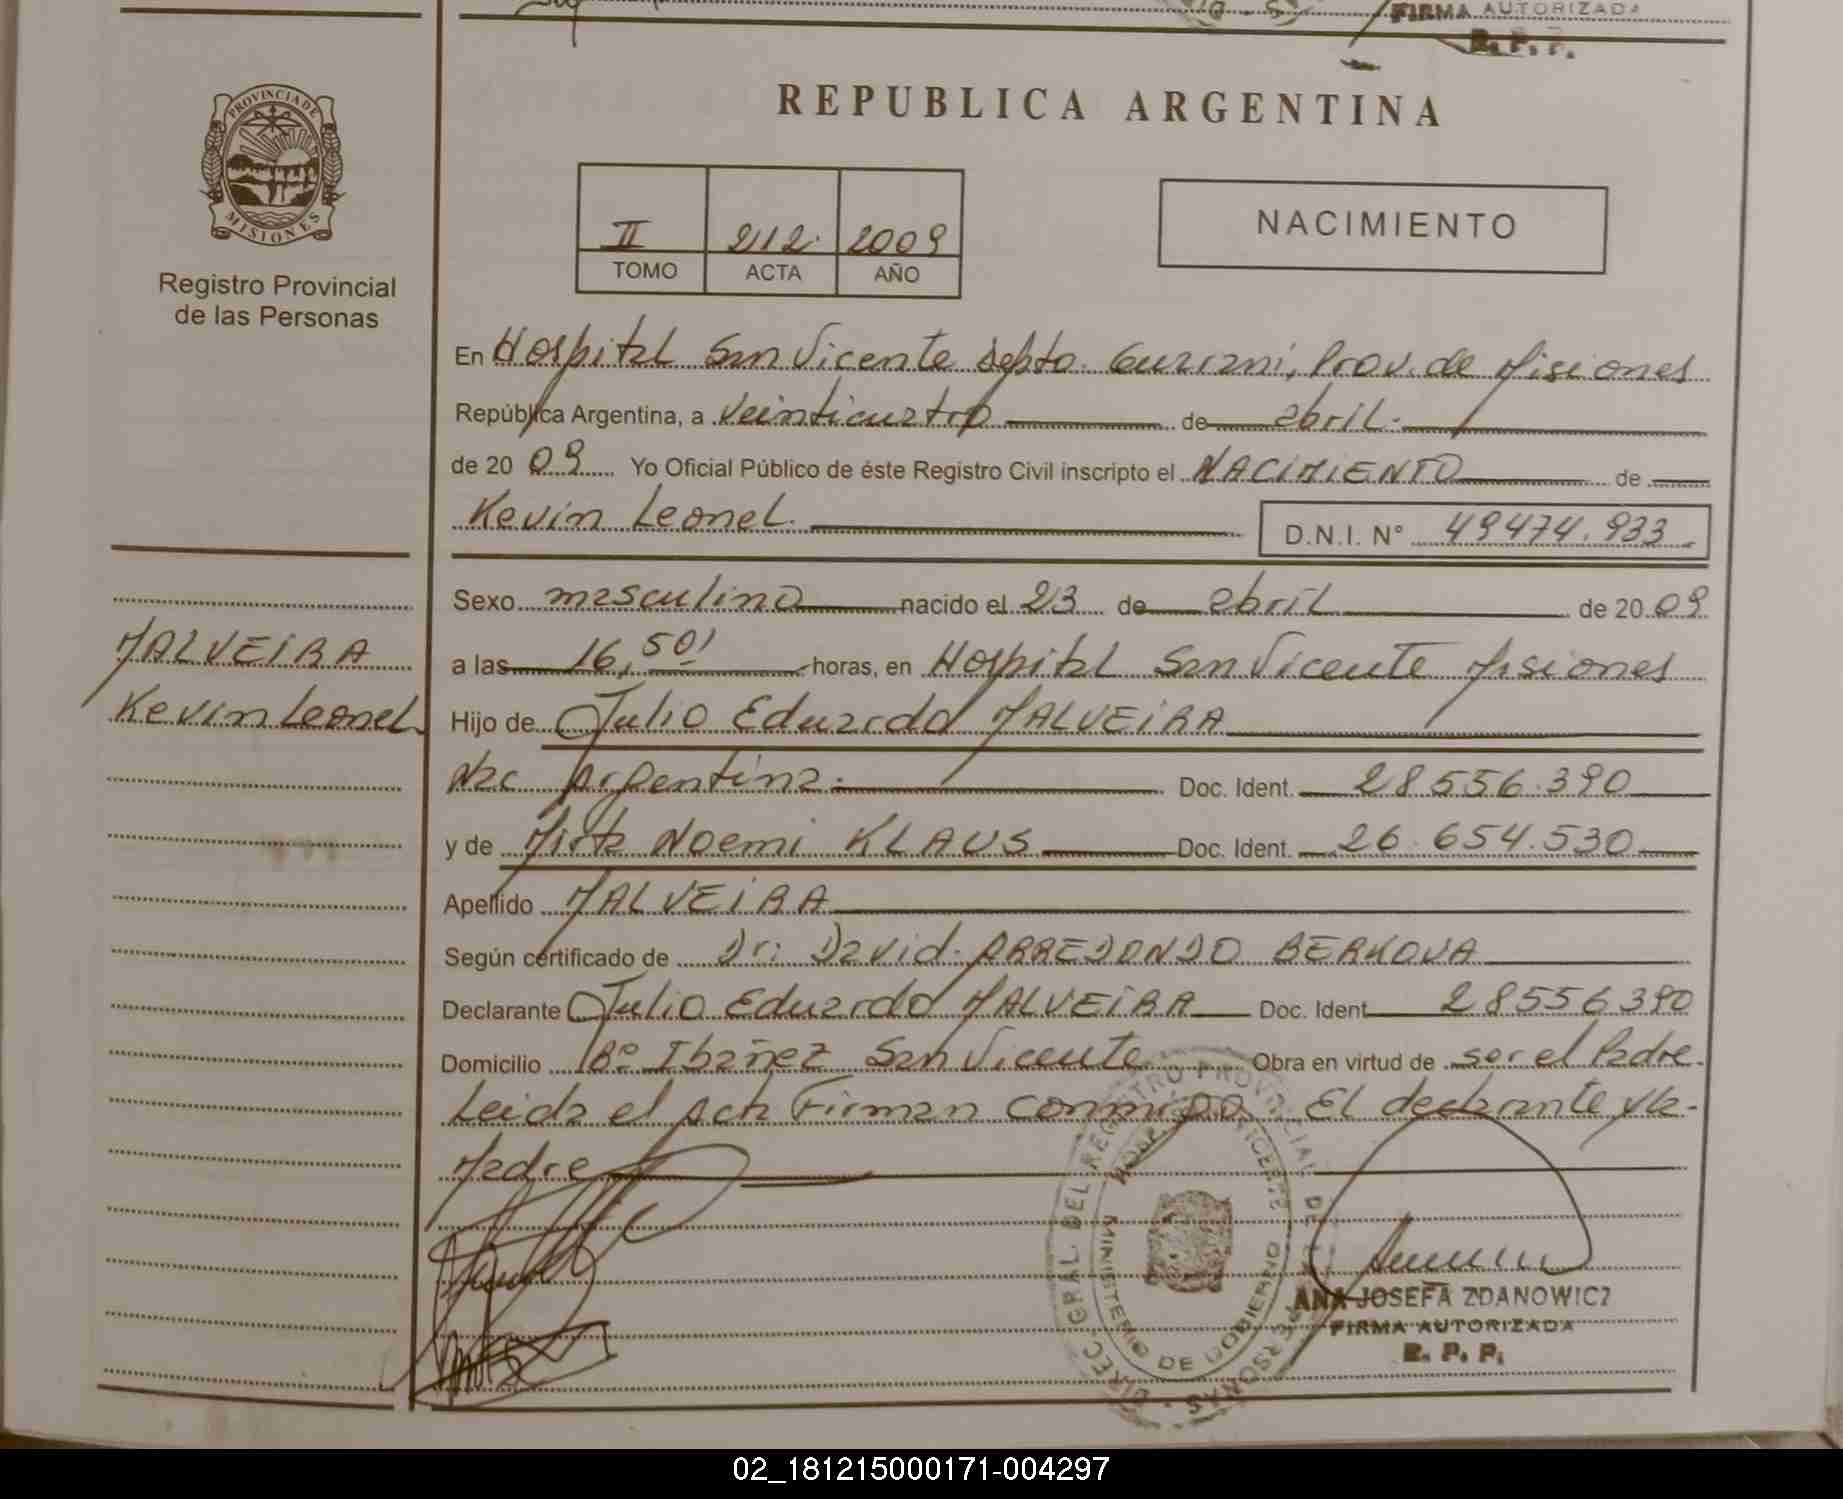 FIRMA AUTORIZADA
R. P. P.
PROVINCIA DE
MISIONES
Registro Provincial
de las Personas
REPUBLICA ARGENTINA
II 212. 2009
TOMO ACTA AÑO
NACIMIENTO
En Hospital San Vicente Depto. Guarani, Prov. de Misiones
República Argentina, a Veinticuatro de abril.
de 20 09 Yo Oficial Público de éste Registro Civil inscripto el NACIMIENTO de
Kevin Leonel. D.N.I. N° 49474.933
Sexo masculino nacido el 23 de abril de 20 09
MALVEIRA
a las 16,50' horas, en Hospital San Vicente Misiones
Kevin Leonel
Hijo de Julio Eduardo MALVEIRA
Nac Argentina. Doc. Ident. 28556.390
y de Mirta Noemi KLAUS Doc. Ident. 26.654.530
Apellido MALVEIRA
Según certificado de Dr: David. ARREDONDO BERKOVA
Declarante Julio Eduardo MALVEIRA Doc. Ident. 28556390
Domicilio B° Ibañez San Vicente Obra en virtud de ser el Padre.
Leida el acta Firman conmigo: El declarante y la
Madre
DIREC. GRAL. DEL REGISTRO PROVINCIAL DE LAS PERSONAS
MINISTERIO DE GOBIERNO
ANA JOSEFA ZDANOWICZ
FIRMA AUTORIZADA
R. P. P.
02_181215000171-004297